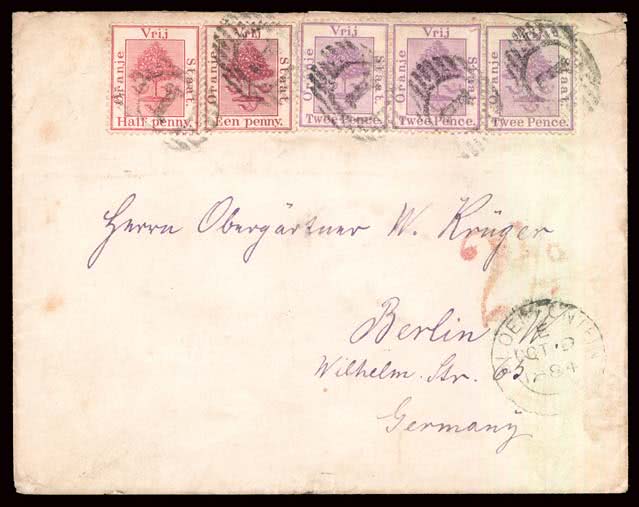 Oranje Vrij Staat.
Half penny.
Oranje Vrij Staat.
Een penny.
Oranje Vrij Staat.
Twee Pence.
Oranje Vrij Staat.
Twee Pence.
Oranje Vrij Staat.
Twee Pence.
Herrn Obergärtner W. Krüger
Berlin W
Wilhelm. Str. 63
Germany
BLOEMFONTEIN
E
OCT
84